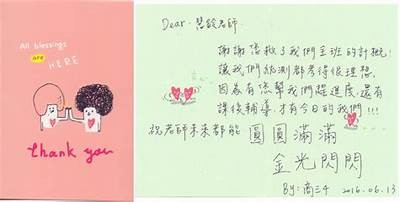 All blessings
are HERE
thank you
Dear. 慧銓老師
謝謝您救了我們全班的計概!
讓我們統測都考得很理想,
因為有您幫我們趕進度,還有
課後輔導,才有今日的我們!!!
祝老師未來都能 圓圓滿滿
金光閃閃
BY: 商三4 2016.06.13